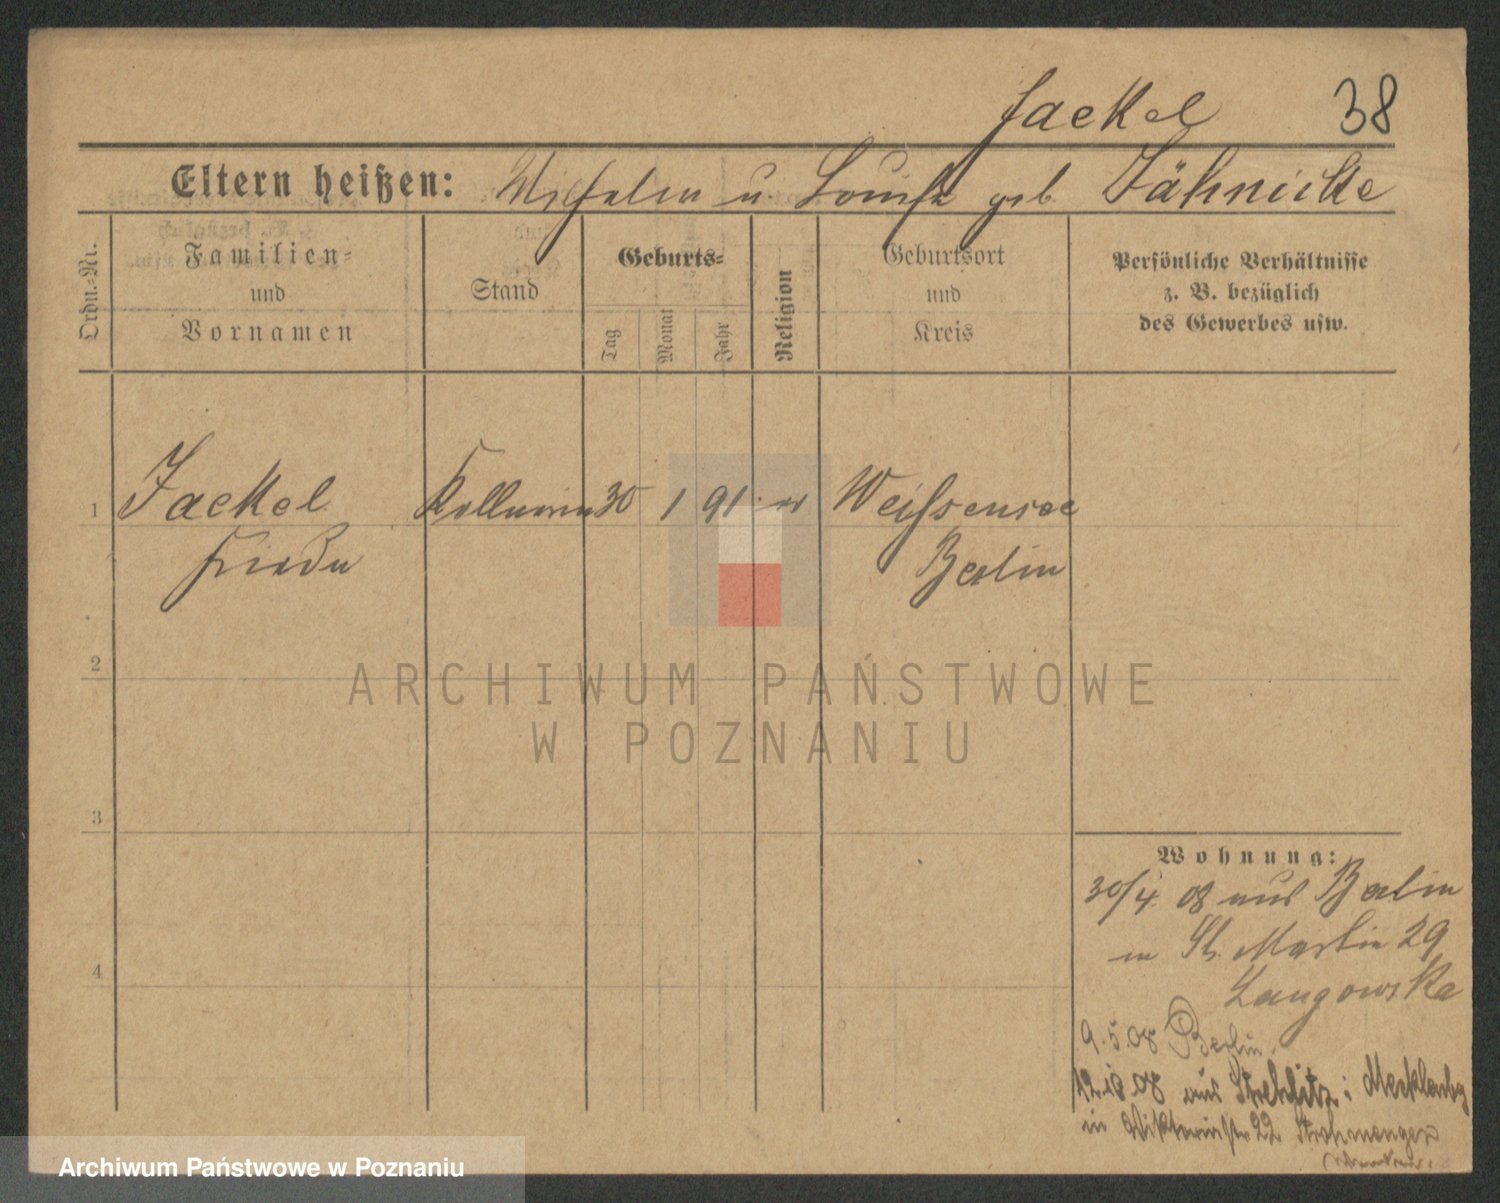 Jaekel 38
Eltern heißen: Wilhelm u. Louise geb. Jähnicke
Ordn.-Nr.
Familien-
und
Vornamen
Stand
Geburts-
Tag
Monat
Jahr
Religion
Geburtsort
und
Kreis
Persönliche Verhältnisse
z. B. bezüglich
des Gewerbes usw.
1 Jaekel Kellnerin 30 1 91 ev Weißensee
Frieda Berlin
2
3
4
ARCHIWUM PAŃSTWOWE
W POZNANIU
Wohnung:
30/4. 08 aus Berlin
in St. Martin 29
Langowska
9.5.08 Berlin.
08 aus Strehlitz i Mecklenbg
in Viktoriastr 22
Archiwum Państwowe w Poznaniu